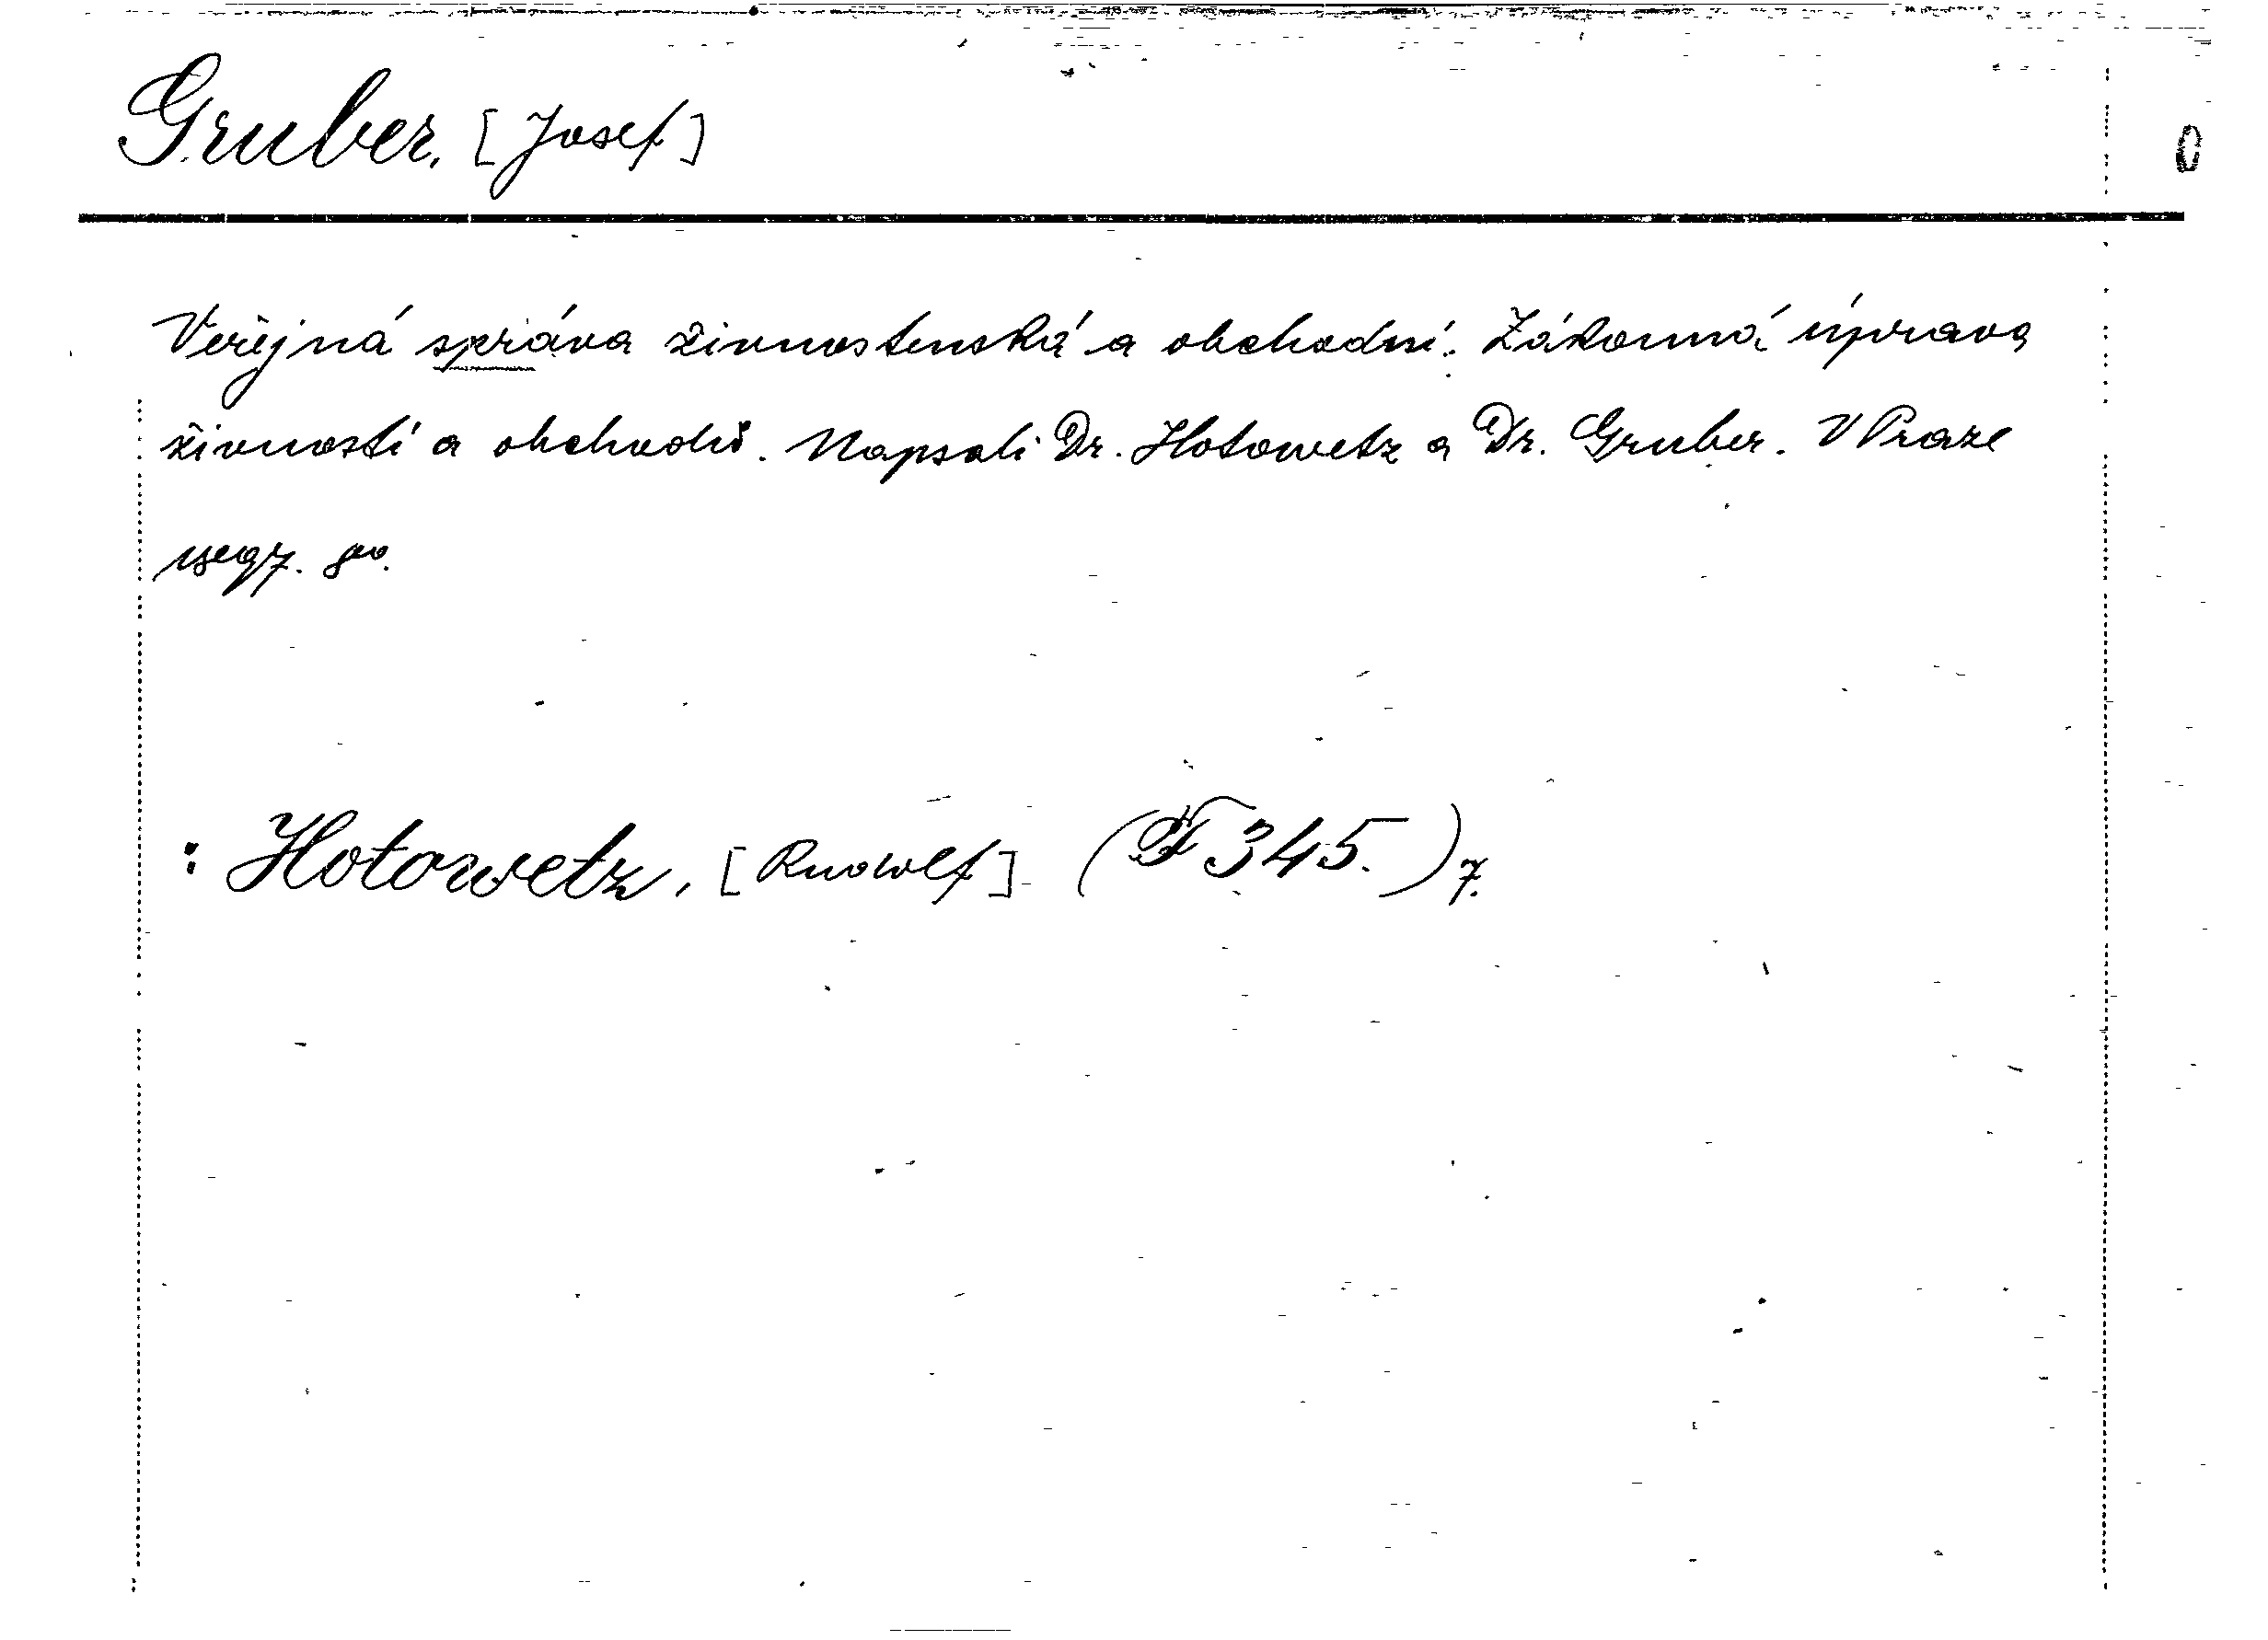 Gruber, [Josef]
Veřejná správa živnostenská a obchodní. Zákonná úprava
živností a obchodů. Napsali Dr. Hotowetz a Dr. Gruber. V Praze
8º.
: Hotowetz, [Rudolf] (F 345.) 7.